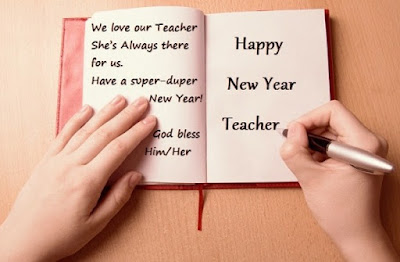 We love our Teacher
She's Always there
for us.
Have a super-duper
New Year!
God bless
Him/Her
Happy
New Year
Teacher